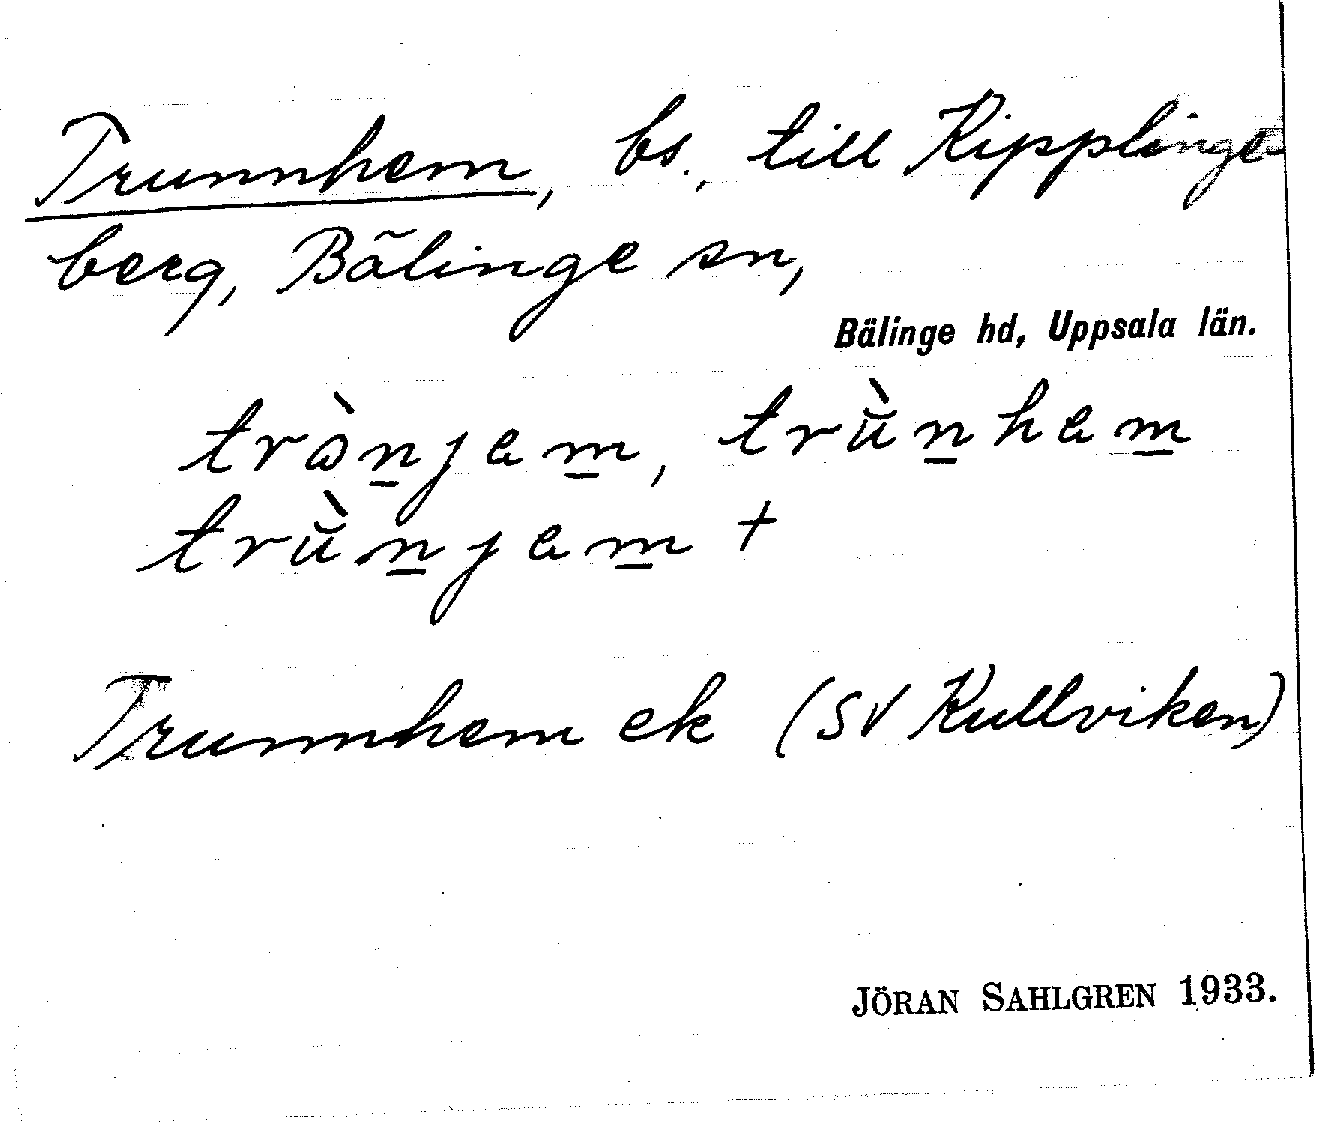 Trunnhem, bs., till Kipplinge
berg, Bälinge sn,
Bälinge hd, Uppsala län.
trὼn̲jem̲, trŭ̀n̲hem̲
trŭ̀n̲jem̲ +
Trunnhem ek (SV Kullviken)
JÖRAN SAHLGREN 1933.